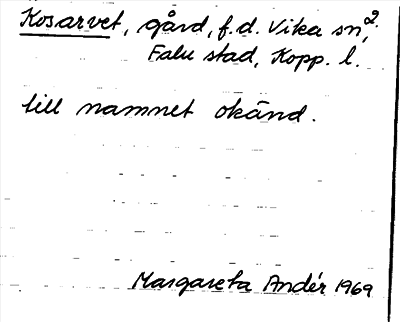 Kosarvet, gård, f.d. Vika sn, 2.
Falu stad, Kopp. l.
till namnet okänd.
Margareta Andér 1969